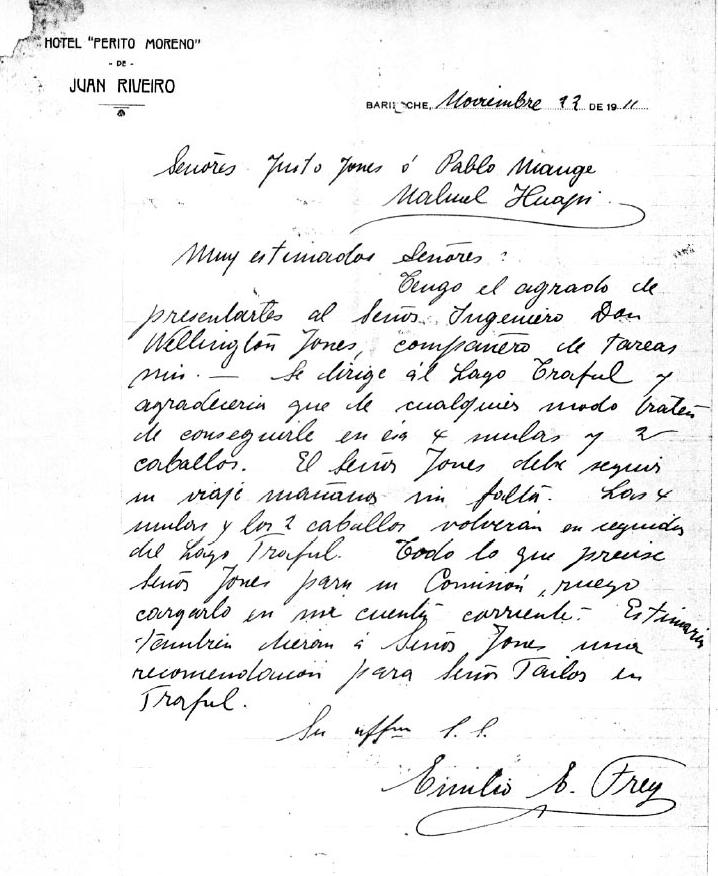 HOTEL "PERITO MORENO"
- DE -
JUAN RIVEIRO
BARILOCHE, Noviembre 12 DE 1911
Señores Justo Jones ó Pablo Mange
Nahuel Huapi
Muy estimados Señores:
Tengo el agrado de
presentarles al Señor Ingeniero Don
Wellington Jones, compañero de tareas
mio. — Se dirige al Lago Traful y
agradeceria que de cualquier modo traten
de conseguirle en ésa 4 mulas y 2
caballos. El Señor Jones debe seguir
su viaje mañana sin falta. Las 4
mulas y los 2 caballos volverán en seguida
del Lago Traful. Todo lo que precise
Señor Jones para su Comisión, ruego
cargarlo en mi cuenta corriente. - Estimaria
tambien dieran á Señor Jones una
recomendacion para Señor in en
Traful.
Su affmo S. S.
Emilio E. Frey